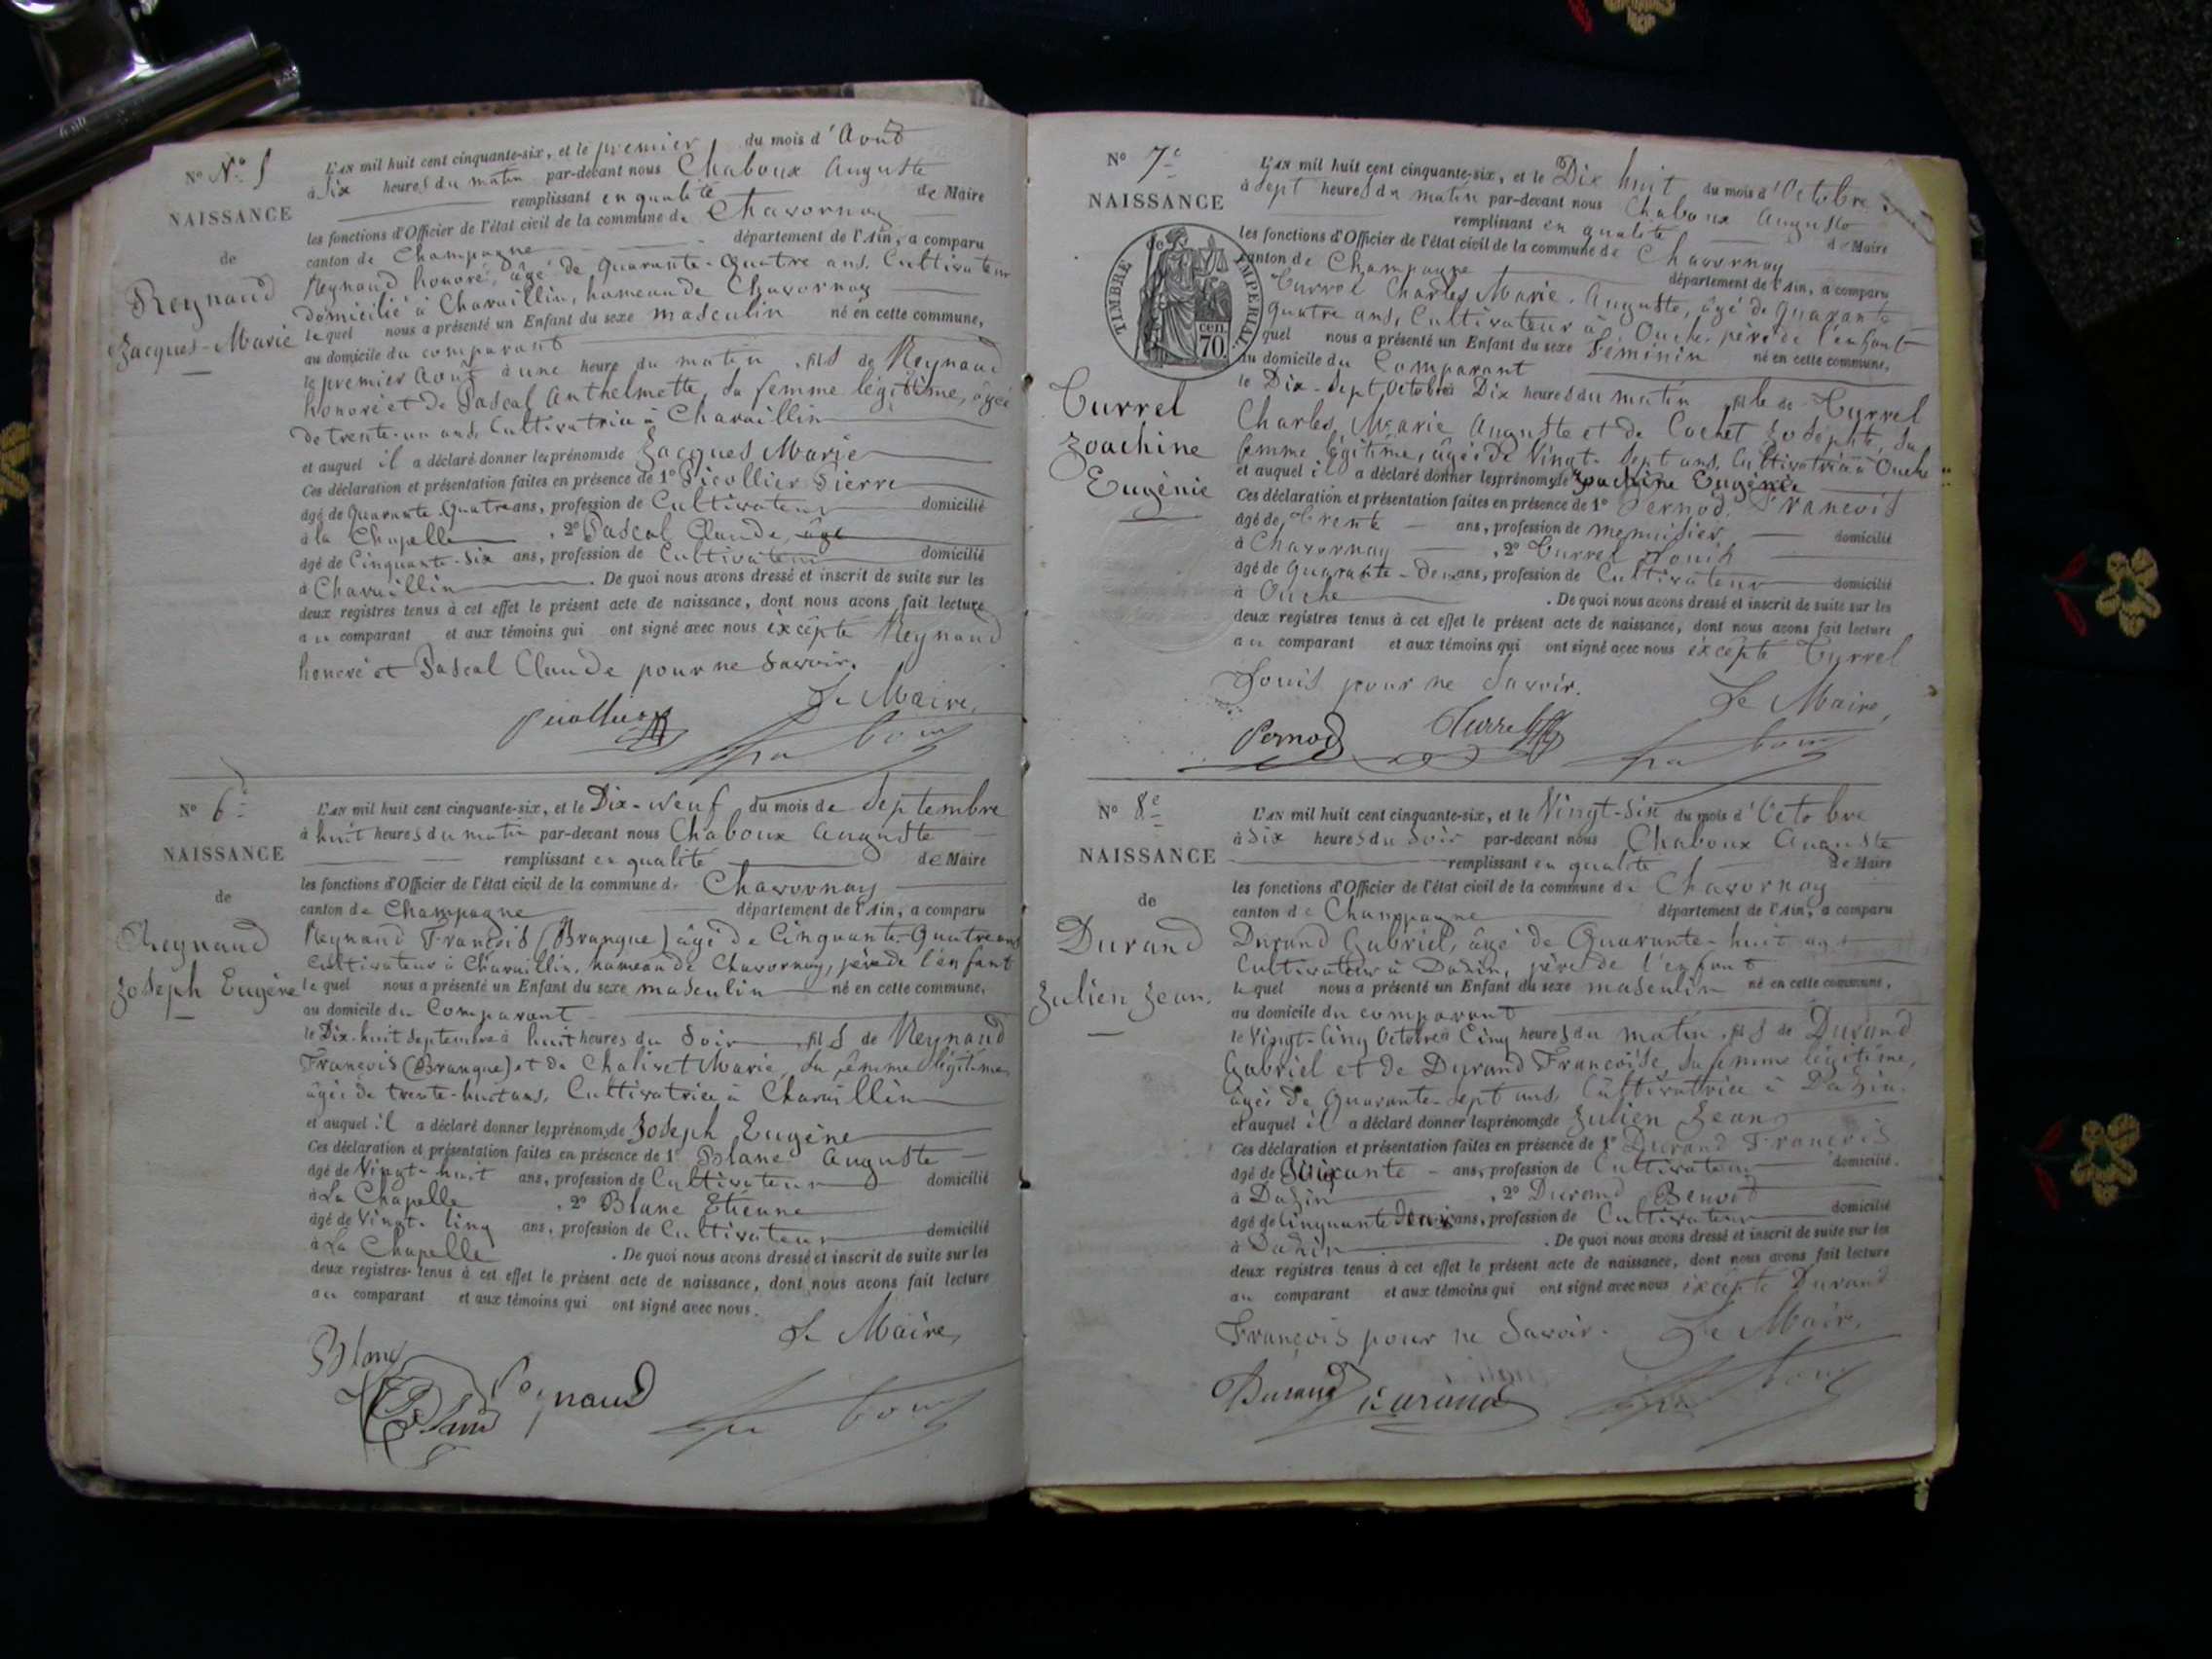 N° N° 5
NAISSANCE
de
Reynaud
Jacques-Marie
L'AN mil huit cent cinquante-six, et le premier du mois d'Août
à Six heures du matin par-devant nous Chaboux Auguste
remplissant en qualité de Maire
les fonctions d'Officier de l'état civil de la commune de Chavornay
canton de Champagne département de l'Ain, a comparu
Reynaud honoré, âgé de quarante-quatre ans, Cultivateur
domicilié à Charaillin, hameau de Chavornay
lequel nous a présenté un Enfant du sexe masculin né en cette commune,
au domicile du comparant
le premier Août à une heure du matin, fils de Reynaud
honoré et de Pascal Anthelmette, sa femme légitime, âgée
de trente-un ans, Cultivatrice à Charaillin
et auquel il a déclaré donner les prénoms de Jacques Marie
Ces déclaration et présentation faites en présence de 1° Picollier Pierre
âgé de Quarante-Quatre ans, profession de Cultivateur domicilié
à la Chapelle, 2° Pascal Claude, âgé
âgé de Cinquante-Six ans, profession de Cultivateur domicilié
à Charaillin. De quoi nous avons dressé et inscrit de suite sur les
deux registres tenus à cet effet le présent acte de naissance, dont nous avons fait lecture
au comparant et aux témoins qui ont signé avec nous excepté Reynaud
honoré et Pascal Claude pour ne savoir.
Le Maire,
N° 6e
NAISSANCE
de
Reynaud
Joseph Eugène
L'AN mil huit cent cinquante-six, et le Dix-neuf du mois de Septembre
à huit heures du matin par-devant nous Chaboux Auguste
remplissant en qualité de Maire
les fonctions d'Officier de l'état civil de la commune de Chavornay
canton de Champagne département de l'Ain, a comparu
Reynaud François (Branque) âgé de Cinquante-Quatre ans
Cultivateur à Charaillin, hameau de Chavornay, père de l'enfant
lequel nous a présenté un Enfant du sexe masculin né en cette commune,
au domicile du Comparant
le Dix-huit Septembre à huit heures du Soir, fils de Reynaud
François (Branque) et de Chalivet Marie, sa femme légitime
âgée de trente-huit ans, Cultivatrice à Charaillin
et auquel il a déclaré donner les prénoms de Joseph Eugène
Ces déclaration et présentation faites en présence de 1° Blanc Auguste
âgé de Vingt-huit ans, profession de Cultivateur domicilié
à La Chapelle, 2° Blanc Etienne
âgé de Vingt-Cinq ans, profession de Cultivateur domicilié
à La Chapelle. De quoi nous avons dressé et inscrit de suite sur les
deux registres tenus à cet effet le présent acte de naissance, dont nous avons fait lecture
au comparant et aux témoins qui ont signé avec nous.
Le Maire,
Blanc
Reynaud
N° 7e
NAISSANCE
de
TIMBRE IMPERIAL
70 cen.
Turrel
Joachine
Eugénie
L'AN mil huit cent cinquante-six, et le Dix huit du mois d'Octobre
à Sept heures du matin par-devant nous Chaboux Auguste
remplissant en qualité de Maire
les fonctions d'Officier de l'état civil de la commune de Chavornay
canton de Champagne département de l'Ain, a comparu
Turrel Charles Marie Auguste, âgé de quarante
quatre ans, Cultivateur à Ouche, père de l'enfant
quel nous a présenté un Enfant du sexe Féminin né en cette commune,
au domicile du Comparant
le Dix-Sept Octobre à Dix heures du matin fille de Turrel
Charles Marie Auguste et de Cochet Josephte, sa
femme légitime, âgée de Vingt-Sept ans, Cultivatrice à Ouche
et auquel il a déclaré donner les prénoms de Joachine Eugénie
Ces déclaration et présentation faites en présence de 1° Pernod François
âgé de Trente ans, profession de menuisier domicilié
à Chavornay, 2° Turrel Louis
âgé de quarante-deux ans, profession de Cultivateur domicilié
à Ouche. De quoi nous avons dressé et inscrit de suite sur les
deux registres tenus à cet effet le présent acte de naissance, dont nous avons fait lecture
au comparant et aux témoins qui ont signé avec nous excepté Turrel
Louis pour ne savoir.
Le Maire,
Pernod Turrel
N° 8e
NAISSANCE
de
Durand
Julien Jean.
L'AN mil huit cent cinquante-six, et le Vingt-Six du mois d'Octobre
à Six heures du Soir par-devant nous Chaboux Auguste
remplissant en qualité de Maire
les fonctions d'Officier de l'état civil de la commune de Chavornay
canton de Champagne département de l'Ain, a comparu
Durand Gabriel, âgé de Quarante-huit ans
Cultivateur à Dazin, père de l'enfant
lequel nous a présenté un Enfant du sexe masculin né en cette commune,
au domicile du comparant
le Vingt-Cinq Octobre à Cinq heures du matin, fils de Durand
Gabriel et de Durand Françoise, sa femme légitime,
âgée de Quarante-Sept ans, Cultivatrice à Dazin.
et auquel il a déclaré donner les prénoms de Julien Jean
Ces déclaration et présentation faites en présence de 1° Durand François
âgé de Soixante ans, profession de Cultivateur domicilié
à Dazin, 2° Durand Benoit
âgé de Cinquante Deux ans, profession de Cultivateur domicilié
à Dazin. De quoi nous avons dressé et inscrit de suite sur les
deux registres tenus à cet effet le présent acte de naissance, dont nous avons fait lecture
au comparant et aux témoins qui ont signé avec nous excepté Durand
François pour ne Savoir. Le Maire,
Durand Durand